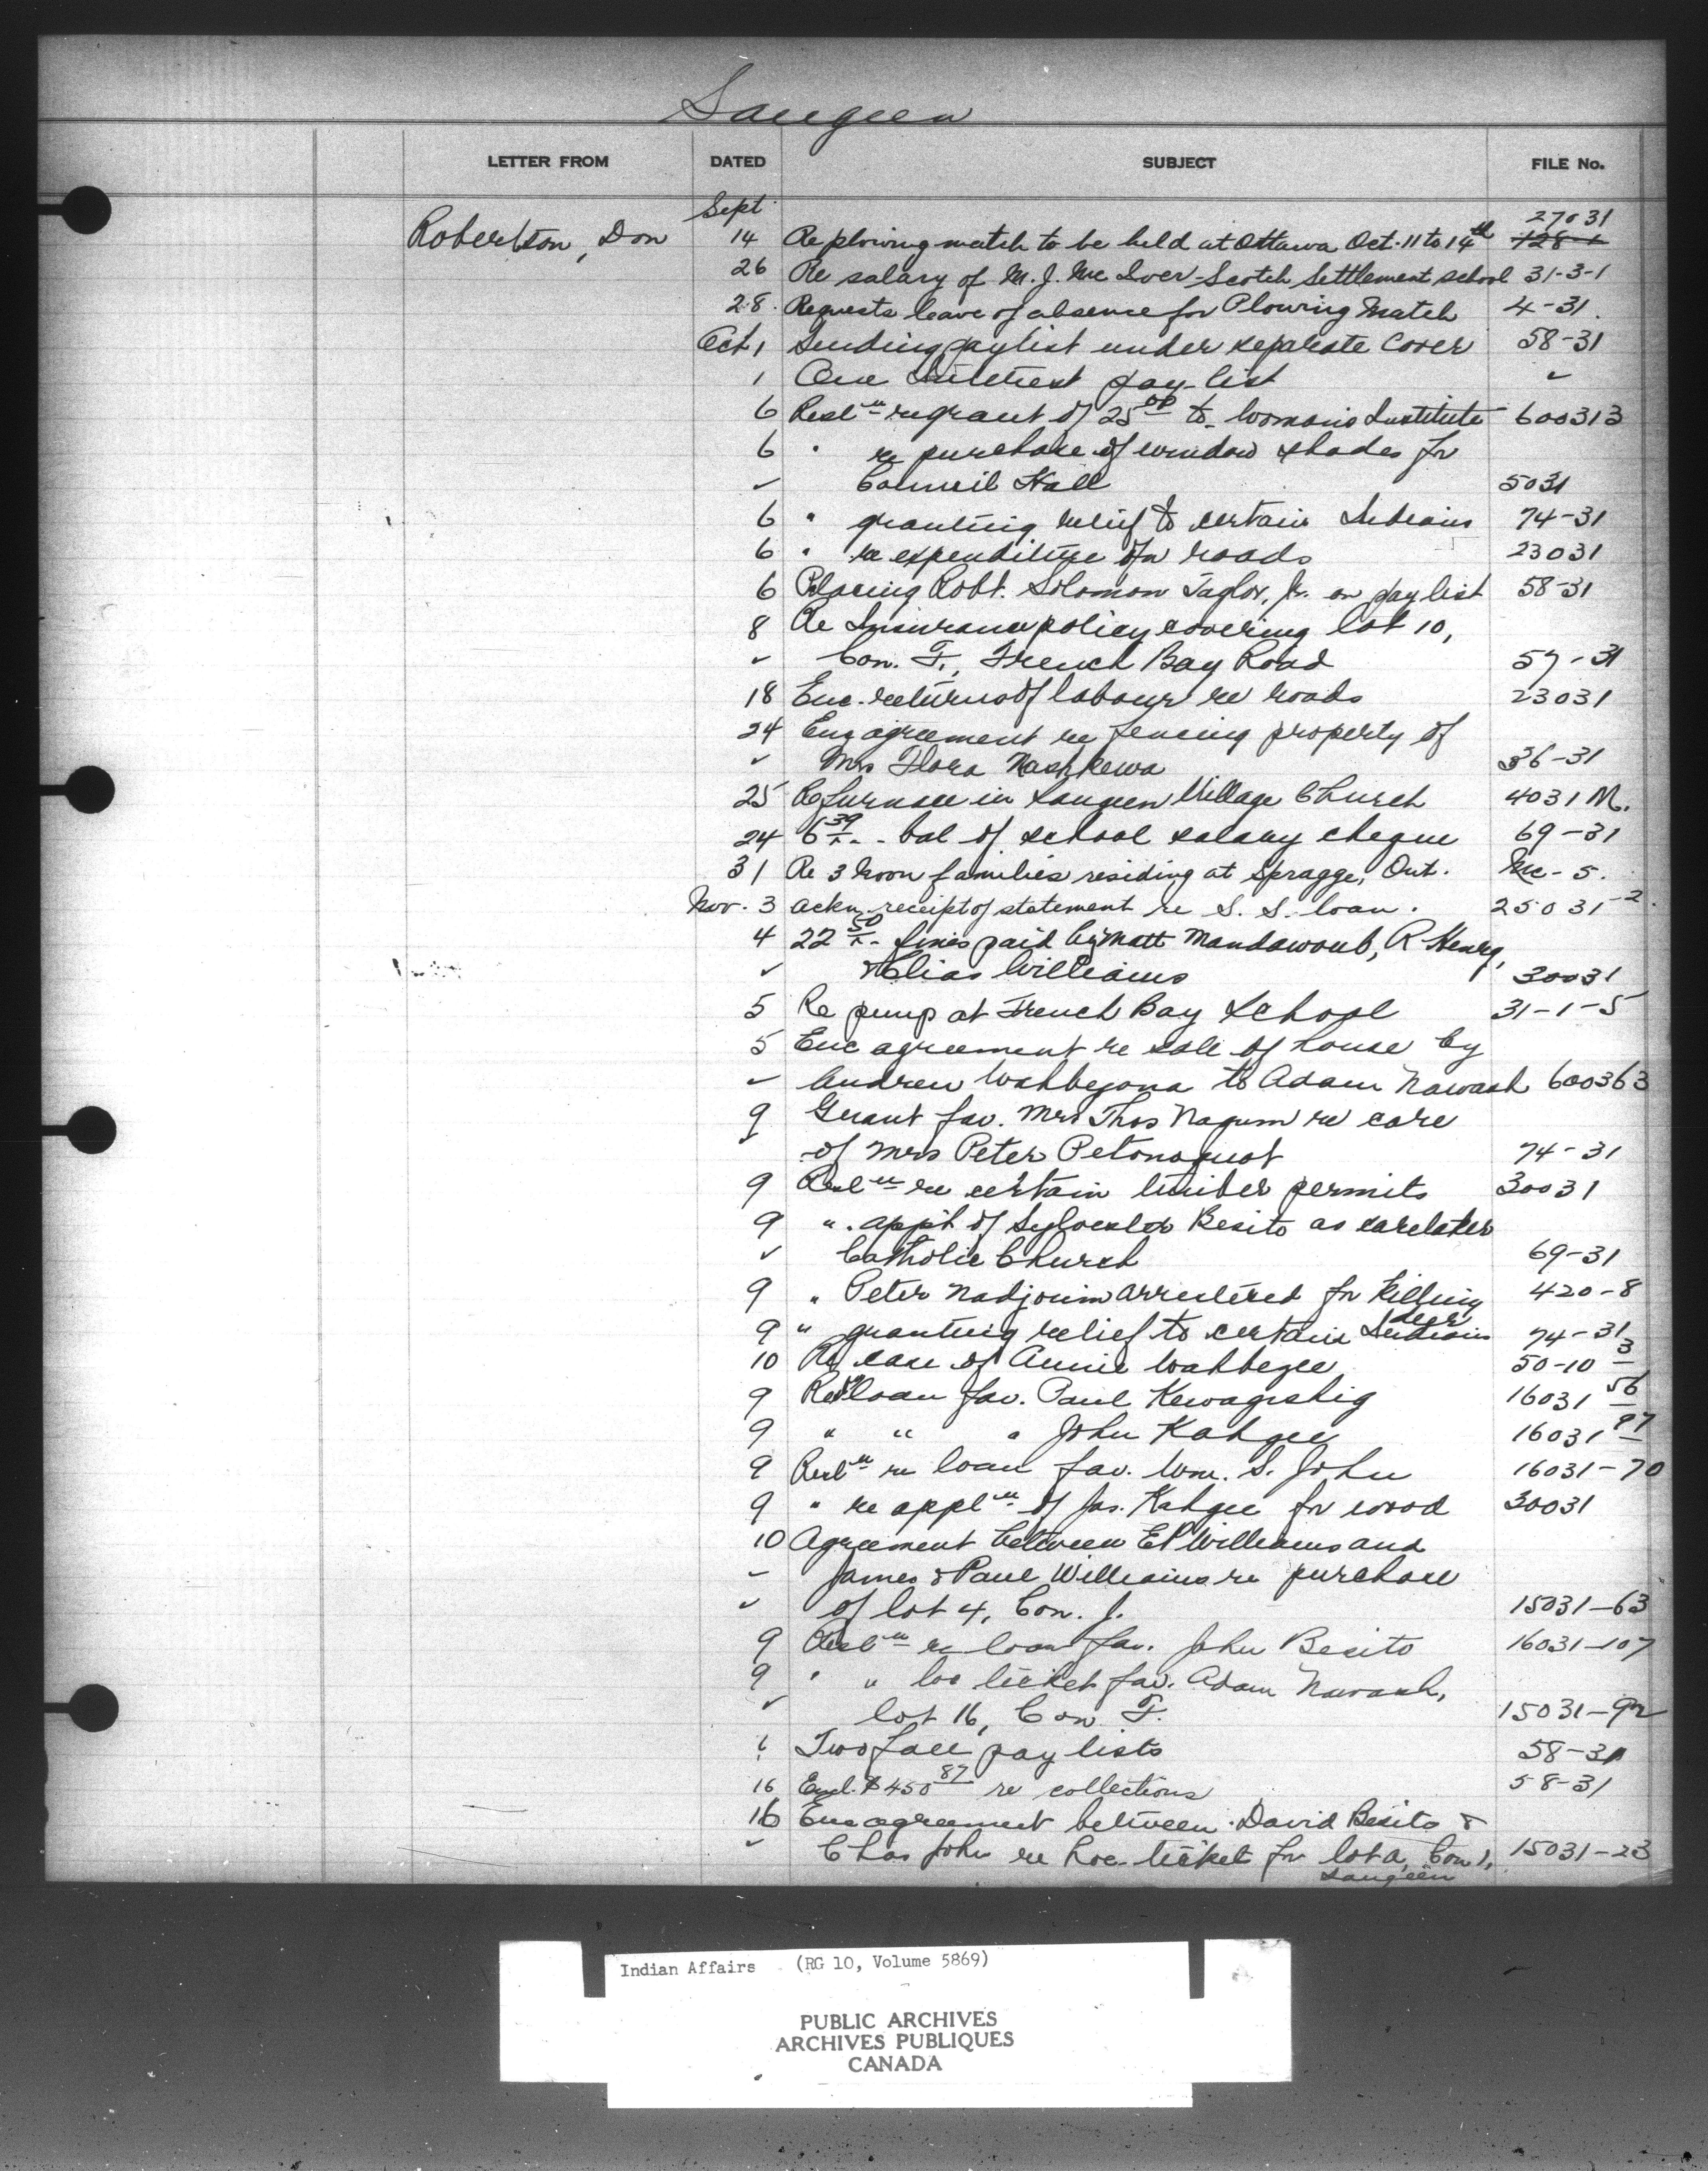 Saugeen
LETTER FROM DATED SUBJECT FILE No.
Sept 27031
Robertson, Don 14 Re plowing match to be held at Ottawa Oct. 11 to 14th 128-1
26 Re salary of M. J. Mc Iver - Scotch Settlement school 31-3-1
28. Requests leave of absence for Plowing Match 4-31.
Oct 1 Sending paylist under separate cover 58-31
1 One Interest pay-list ✓
6 Resln re grant of 25 00 to Woman's Institute 600313
6 " re purchase of window shades for
✓ Council Hall 5031
6 " granting relief to certain Indians 74-31
6 " re expenditure on roads 23031
6 Placing Robt. Solomon Taylor, Jr. on pay list 58-31
8 Re Insurance policy covering lot 10,
✓ Con. F., French Bay Road 57-31
18 Enc. returns of labour re roads 23031
24 Enc agreement re fencing property of
✓ Mrs Flora Nashkewa 36-31
25 Re furnace in Saugeen Village Church 4031 M.
24 6 39 - bal of school salary cheque 69-31
31 Re 3 Moon families residing at Spragge, Ont. Mc-5.
Nov. 3 Ackn. receipt of statement re S. S. loan. 25031-2.
4 22 50 - fines paid by Matt Mandawoub, R Henry,
✓ & Elias Williams 30031
5 Re pump at French Bay School 31-1-5
5 Enc agreement re sale of house by
✓ Andrew Wahbezona to Adam Nawash 600363
9 Grant fav. Mrs Thos Nagum re care
✓ of Mrs Peter Petonoquot 74-31
9 Resln re certain timber permits 30031
9 ". app't of Sylvester Besito as caretaker
✓ Catholic Church 69-31
9 " Peter Nadjouim arrested for killing deer 420-8
9 " granting relief to certain Indians 74-31
10 Re case of Annie Wahbegee 50-10 3
9 Resln loan fav. Paul Kewageshig 16031 56
9 " " " John Kahgee 16031 97
9 Resln re loan fav. Wm. S. John 16031-70
9 " re appln of Jas. Kahgee for wood 30031
10 Agreement between E P Williams and
✓ James & Paul Williams re purchase
✓ of lot 4, Con. J. 15031-63
9 Resln re loan fav. John Besito 16031-107
9 " " loc ticket fav. Adam Nawash,
✓ lot 16, Con F. 15031-92
Two fall pay lists 58-31
16 Encl. $450 87 re collections 58-31
16 Enc agreement between David Besito &
✓ Chas John re loc. ticket for lot a, Con 1, 15031-23
Saugeen
Indian Affairs (RG 10, Volume 5869)
PUBLIC ARCHIVES
ARCHIVES PUBLIQUES
CANADA